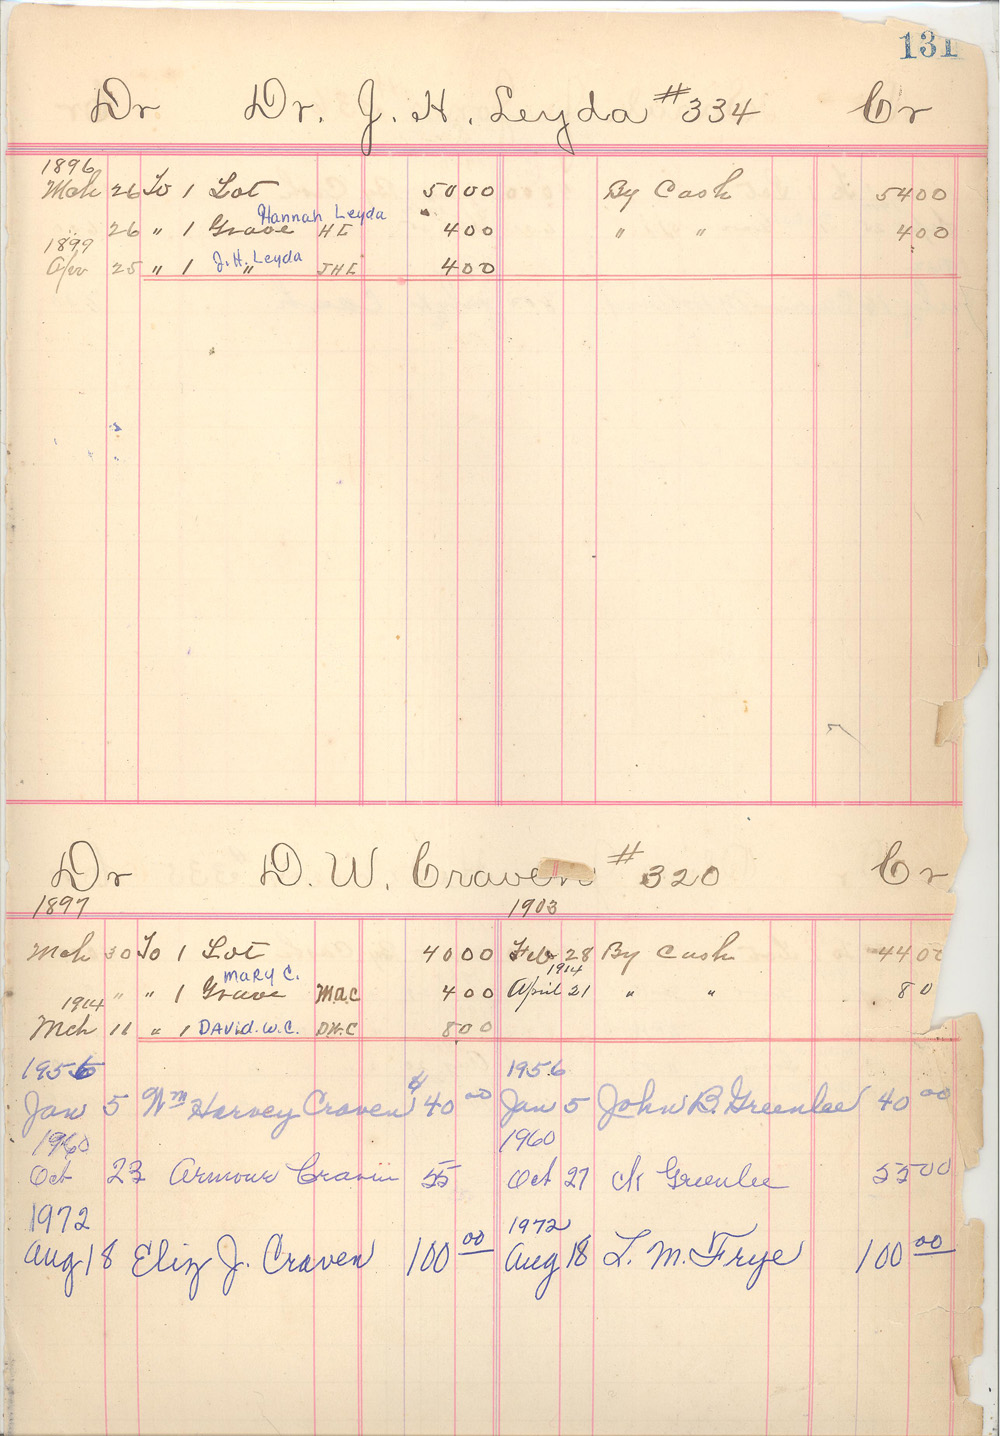 131
Dr Dr. J. H. Leyda #334 Cr
1896
Mch 26 To 1 Lot 50 00 By Cash 54 00
Hannah Leyda
26 " 1 Grave HL 4 00 " " 4 00
1899
Apr 25 " 1 " J.H. Leyda JHL 4 00
Dr D. W. Craven #320 Cr
1897 1903
Mch 30 To 1 Lot 40 00 Feb 28 By Cash 44 00
Mary C. 1914
" " 1 Grave M.a.C 4 00 April 21 " " 8 0
1914
Mch 11 " 1 David.W.C. D.W.C 8 00
1956 1956
Jan 5 Wm Harvey Craven $40 00 Jan 5 John B. Greenlee 40 00
1960 1960
Oct 23 Armour Craven 55 Oct 27 ck Greenlee 55 00
1972 1972
Aug 18 Eliz J. Craven 100 00 Aug 18 L. M. Frye 100 00